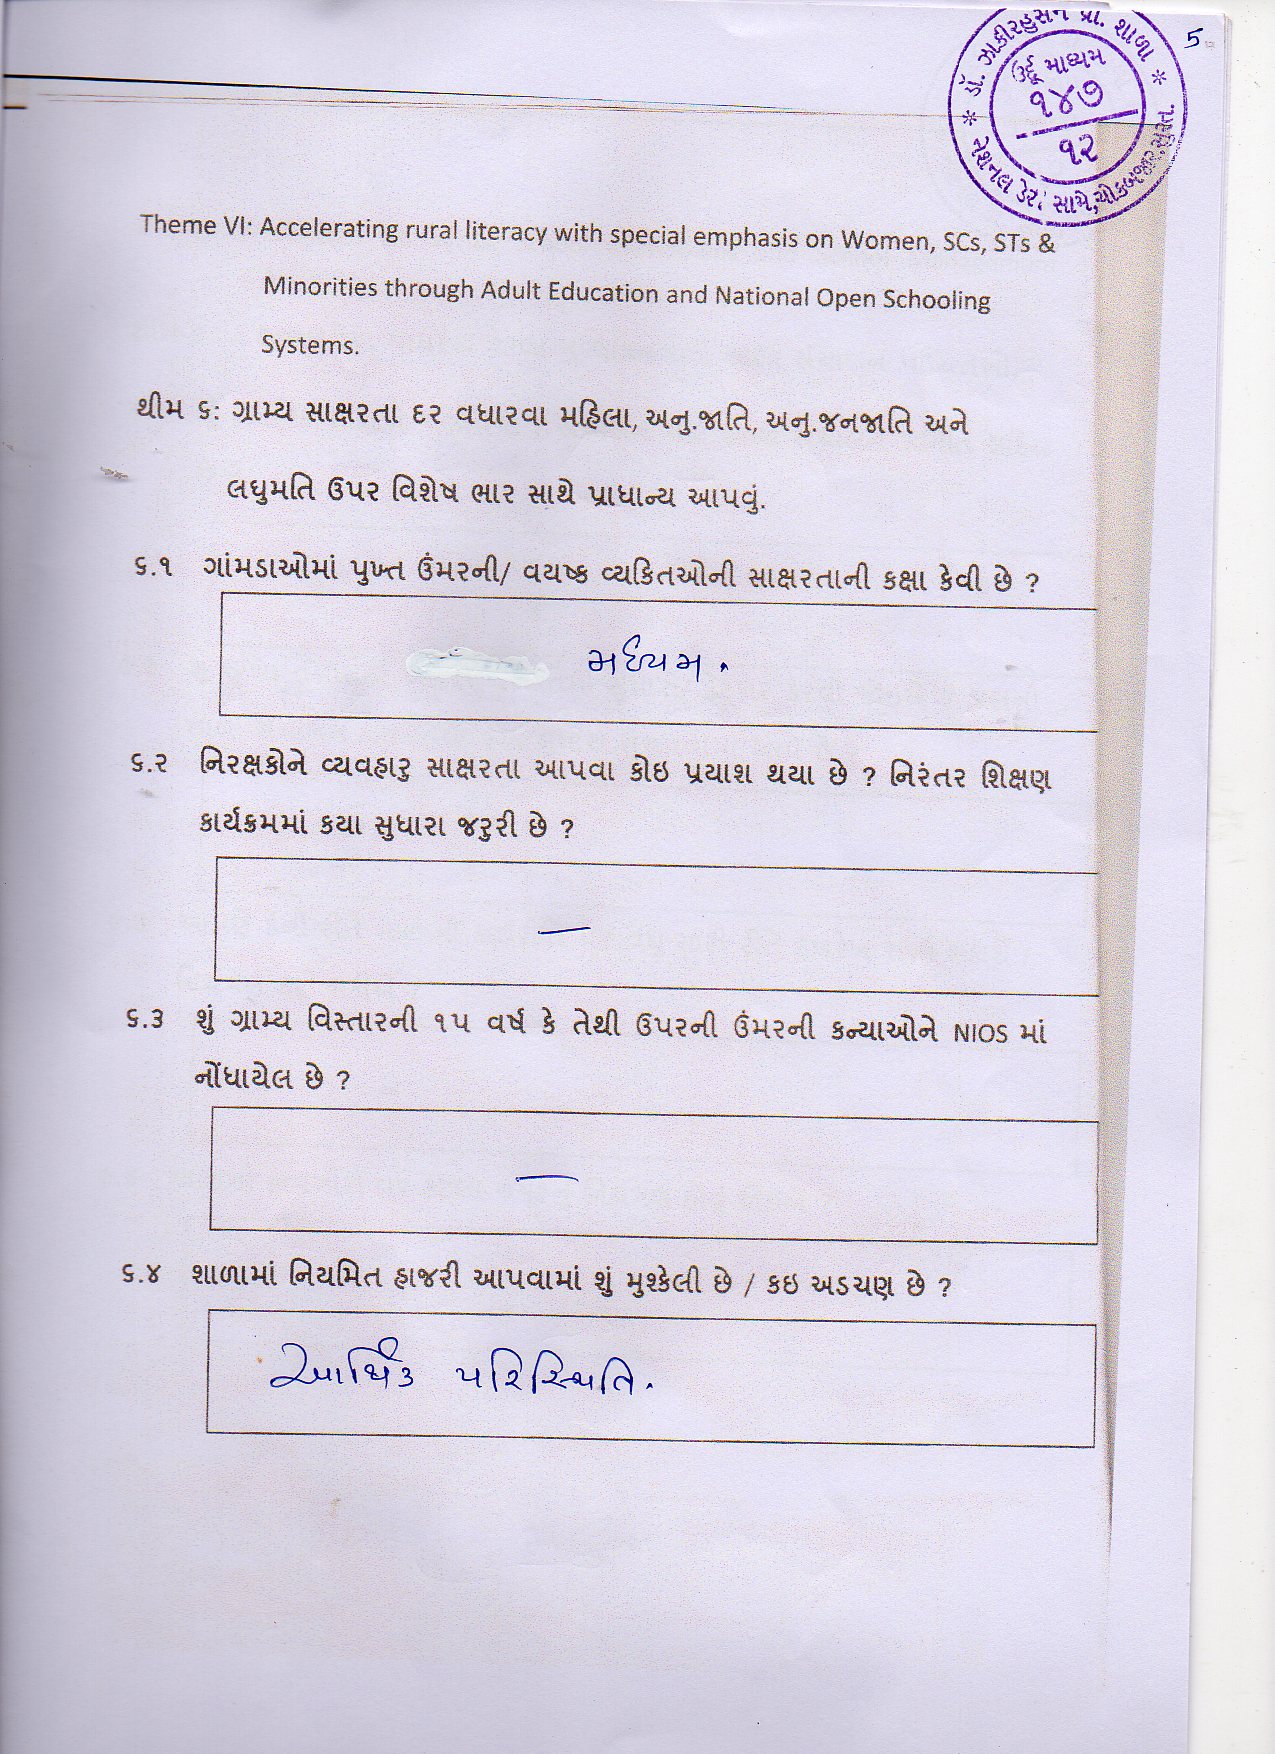 ડૉ. ઝાકીરહુસેન પ્રા. શાળા
ઉર્દૂ માધ્યમ
૧૪૭
૧૨
નેશનલ ડેરી સામે, ચોકબજાર, સુરત.
5
Theme VI: Accelerating rural literacy with special emphasis on Women, SCs, STs &
Minorities through Adult Education and National Open Schooling
Systems.
થીમ ૬: ગ્રામ્ય સાક્ષરતા દર વધારવા મહિલા, અનુ.જાતિ, અનુ.જનજાતિ અને
લઘુમતિ ઉપર વિશેષ ભાર સાથે પ્રાધાન્ય આપવું.
૬.૧ ગાંમડાઓમાં પુખ્ત ઉંમરની/ વયષ્ક વ્યકિતઓની સાક્ષરતાની કક્ષા કેવી છે ?
મધ્યમ.
૬.૨ નિરક્ષકોને વ્યવહારુ સાક્ષરતા આપવા કોઇ પ્રયાશ થયા છે ? નિરંતર શિક્ષણ
કાર્યક્રમમાં કયા સુધારા જરુરી છે ?
—
૬.૩ શું ગ્રામ્ય વિસ્તારની ૧૫ વર્ષ કે તેથી ઉપરની ઉંમરની કન્યાઓને NIOS માં
નોંધાયેલ છે ?
—
૬.૪ શાળામાં નિયમિત હાજરી આપવામાં શું મુશ્કેલી છે / કઇ અડચણ છે ?
આર્થિક પરિસ્થિતિ.